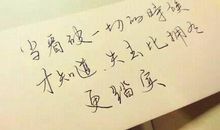 当看破一切的时候
才知道,失去比拥有
更踏实